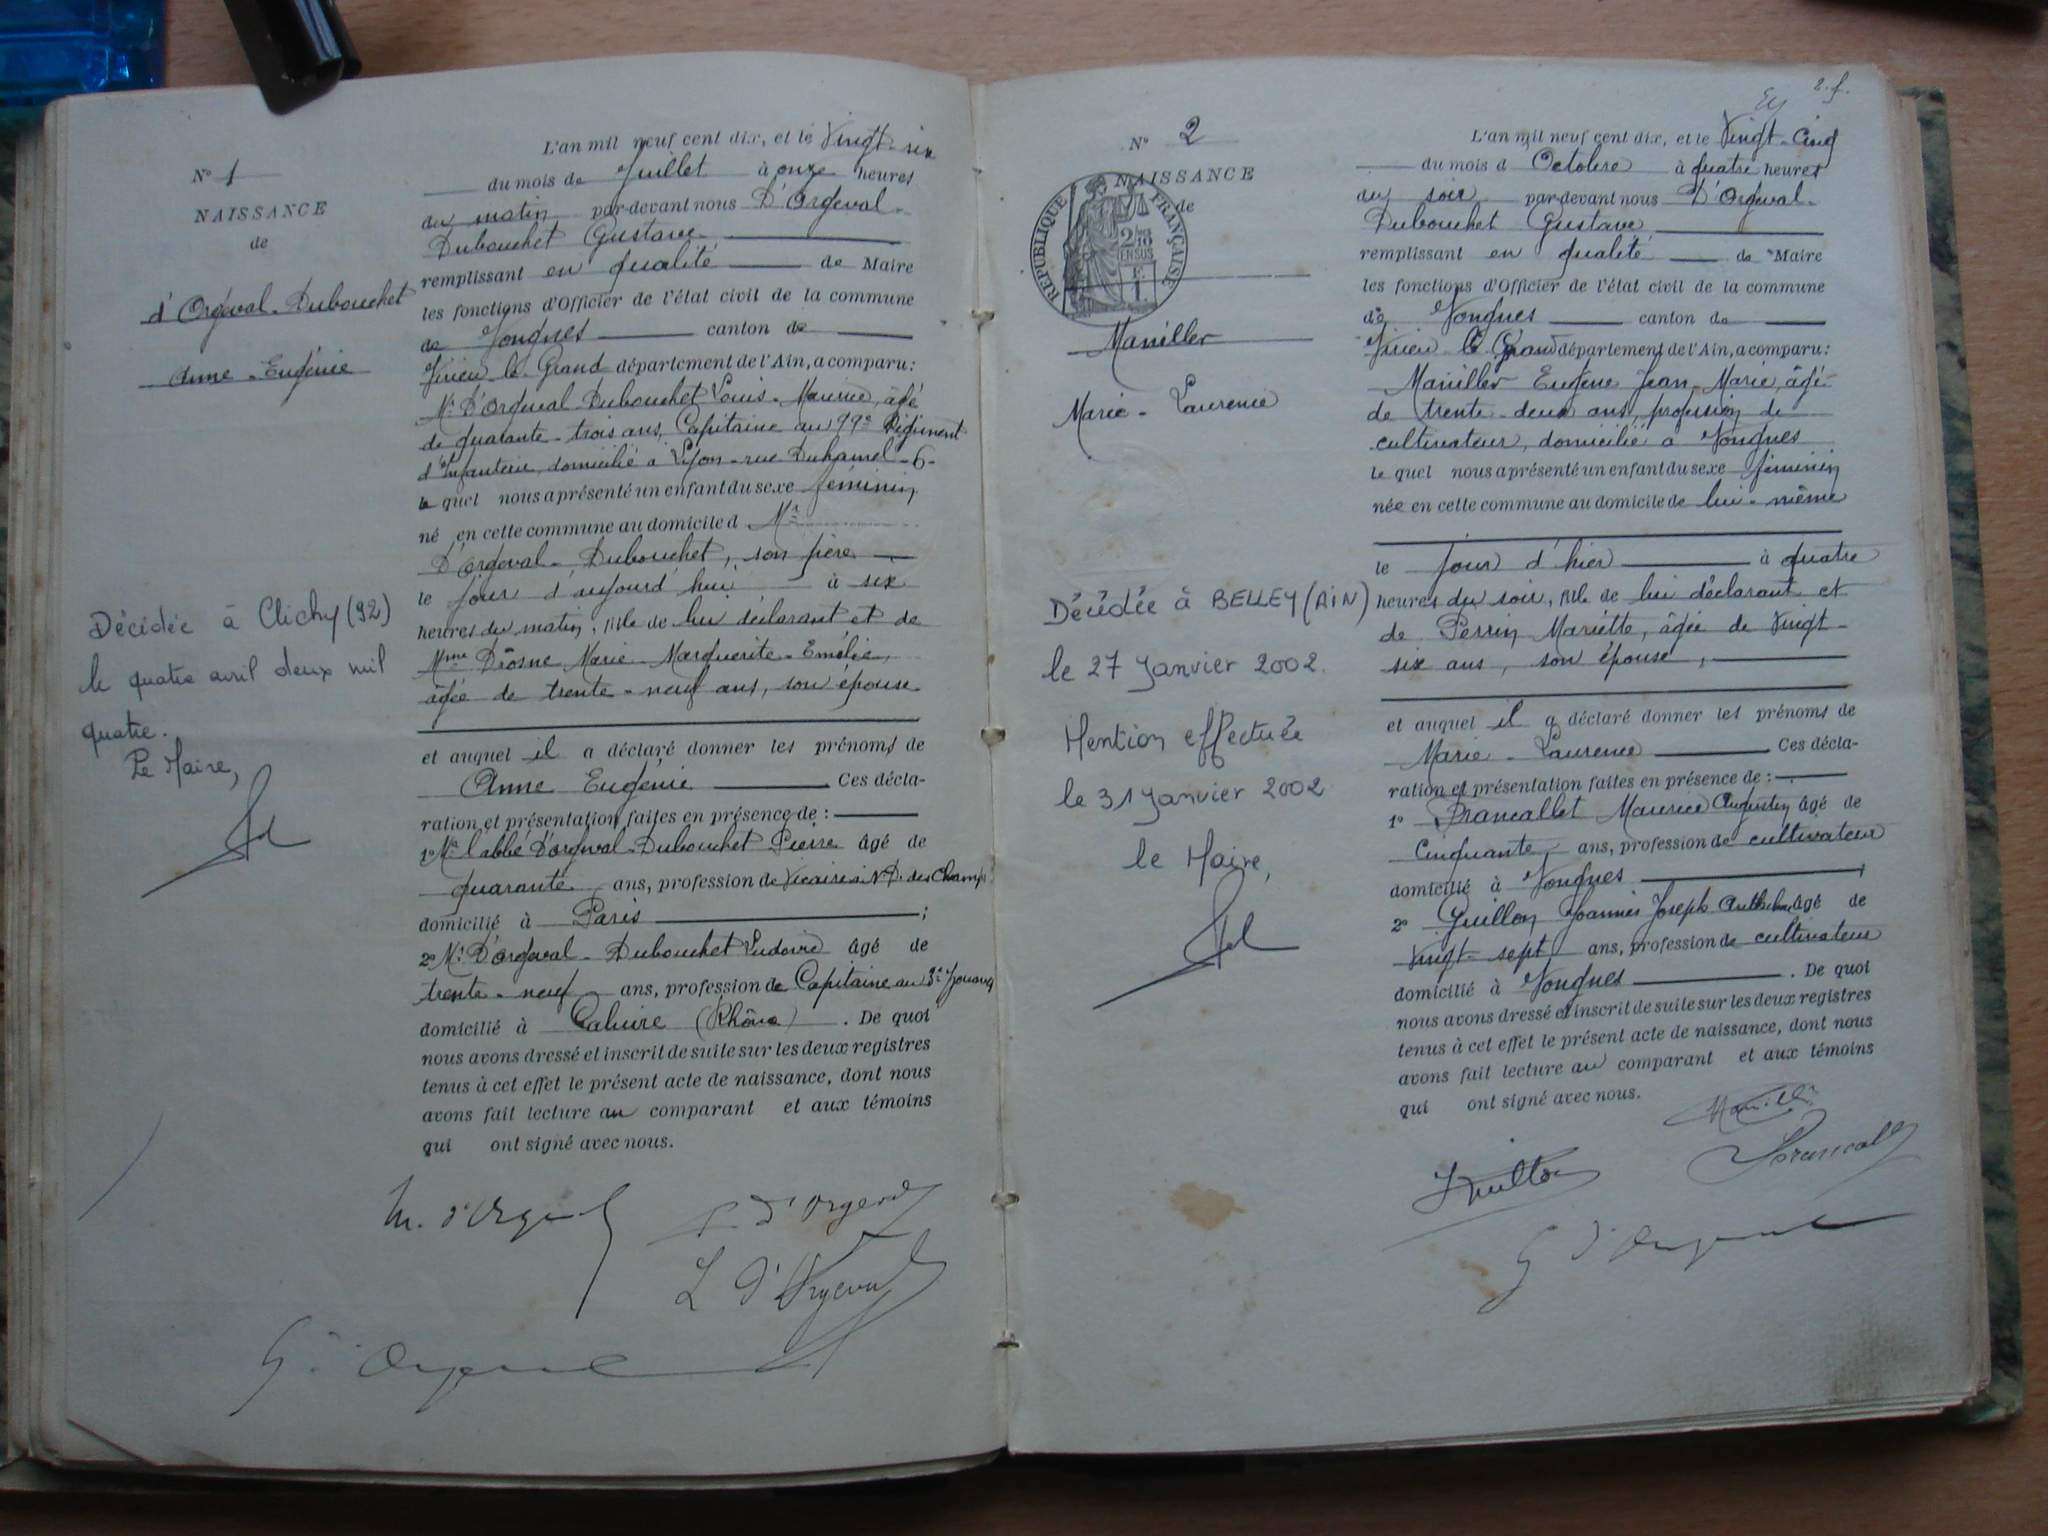 N° 1
NAISSANCE
de
d'Orgeval-Dubouchet
Anne-Eugénie
Décédée à Clichy (92)
le quatre avril deux mil
quatre.
Le Maire,
L'an mil neuf cent dix, et le Vingt-six
du mois de Juillet à onze heures
du matin par-devant nous D'Orgeval-
Dubouchet Gustave
remplissant en qualité de Maire
les fonctions d'Officier de l'état civil de la commune
de Vongnes canton de
Virieu-le-Grand département de l'Ain, a comparu:
Mr D'Orgeval-Dubouchet Louis-Maurice, âgé
de quarante-trois ans, Capitaine au 99e Régiment
d'Infanterie, domicilié à Lyon-rue Duhamel-6-
le quel nous a présenté un enfant du sexe féminin
né en cette commune au domicile d Mr
D'Orgeval-Dubouchet, son père
le jour d'aujourd'hui à six
heures du matin, fille de lui déclarant et de
Mme Drosne Marie-Marguerite-Emélie,
âgée de trente-neuf ans, son épouse
et auquel il a déclaré donner les prénoms de
Anne Eugénie Ces décla-
ration et présentation faites en présence de :
1° Mr l'abbé D'orgeval-Dubouchet Pierre âgé de
quarante ans, profession de Vicaire à N.D. des Champs
domicilié à Paris ;
2° Mr D'Orgeval-Dubouchet Ludovic âgé de
trente-neuf ans, profession de Capitaine au 3e Zouaves
domicilié à Caluire (Rhône) . De quoi
nous avons dressé et inscrit de suite sur les deux registres
tenus à cet effet le présent acte de naissance, dont nous
avons fait lecture au comparant et aux témoins
qui ont signé avec nous.
M. d'Orgeval
P. d'Orgeval
L d'Orgeval
G d'Orgeval
2. f.
N° 2
NAISSANCE
de
REPUBLIQUE FRANÇAISE
2/10
EN SUS
1 F.
Maniller
Marie-Laurence
Décédée à BELLEY (AIN)
le 27 Janvier 2002.
Mention effectuée
le 31 Janvier 2002
le Maire,
L'an mil neuf cent dix, et le Vingt-Cinq
du mois d Octobre à quatre heures
du soir par-devant nous D'Orgeval-
Dubouchet Gustave
remplissant en qualité de Maire
les fonctions d'Officier de l'état civil de la commune
de Vongnes canton de
Virieu-le-Grand département de l'Ain, a comparu:
Maniller Eugène Jean-Marie, âgé
de trente-deux ans, profession de
cultivateur, domicilié à Vongnes
le quel nous a présenté un enfant du sexe féminin
née en cette commune au domicile de lui-même
le jour d'hier à quatre
heures du soir, fille de lui déclarant et
de Perrin Mariette, âgée de Vingt-
six ans, son épouse,
et auquel il a déclaré donner les prénoms de
Marie-Laurence Ces décla-
ration et présentation faites en présence de :
1° Brancallet Maurice Augustin âgé de
Cinquante ans, profession de cultivateur
domicilié à Vongnes
2° Guillon Joannès Joseph Anthelme âgé de
Vingt-sept ans, profession de cultivateur
domicilié à Vongnes . De quoi
nous avons dressé et inscrit de suite sur les deux registres
tenus à cet effet le présent acte de naissance, dont nous
avons fait lecture au comparant et aux témoins
qui ont signé avec nous.
Guillon
G d'Orgeval